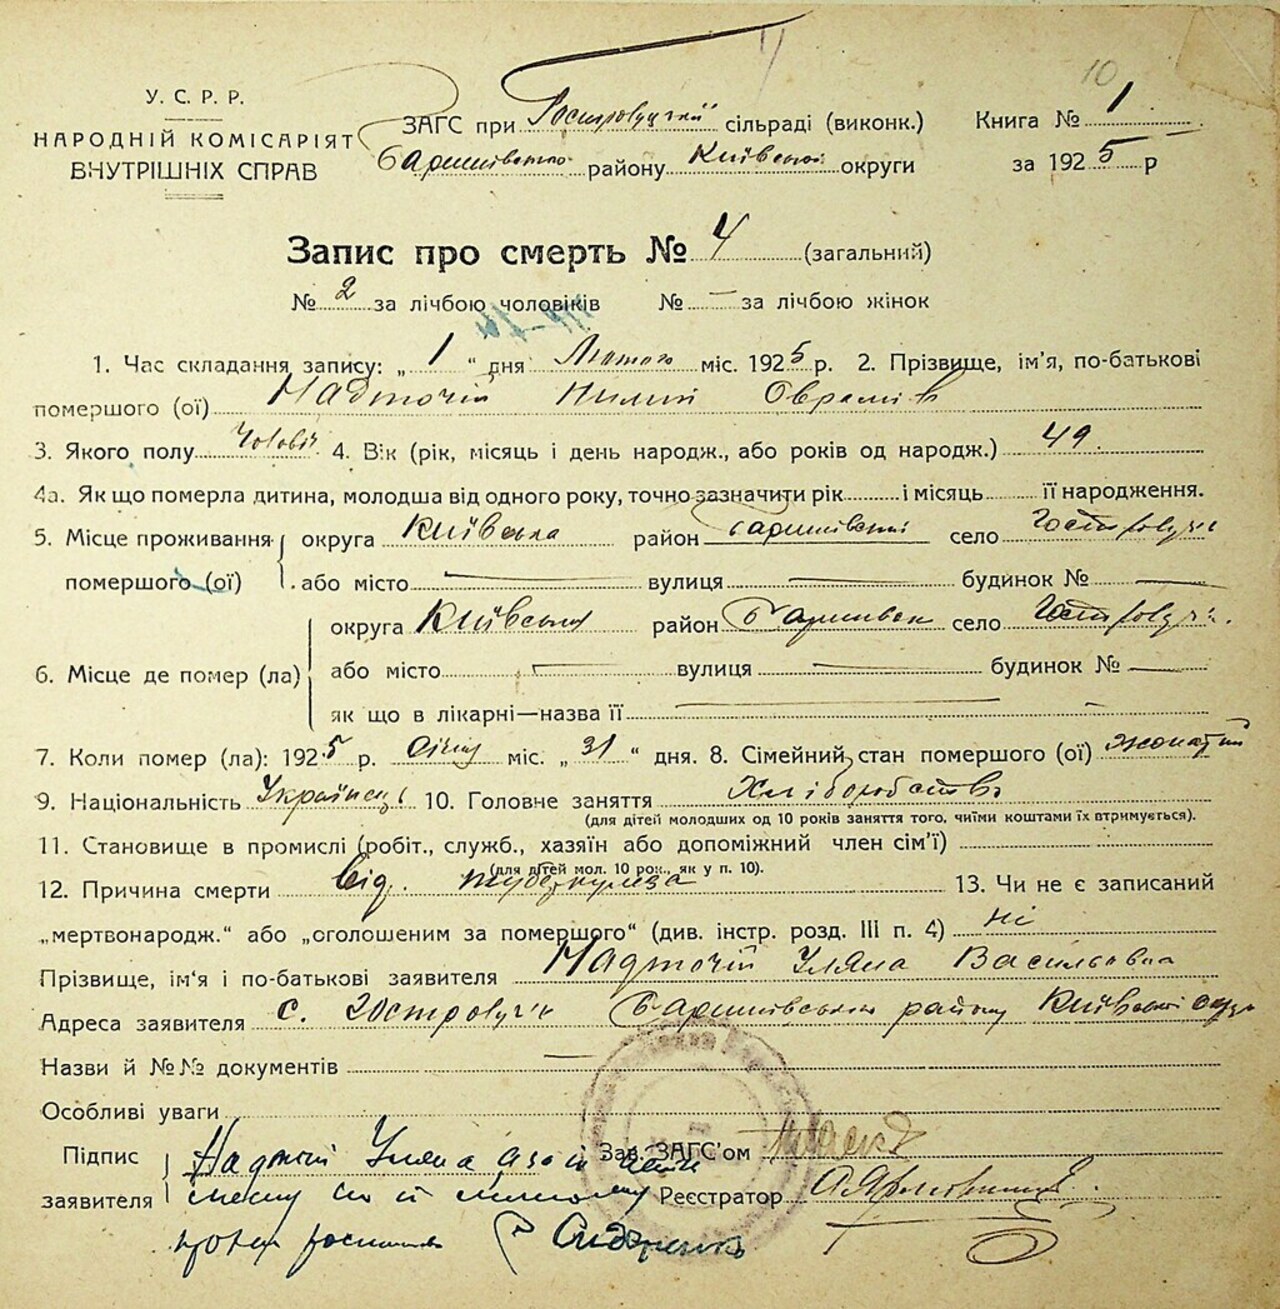 10
У. С. Р. Р.
НАРОДНІЙ КОМІСАРІЯТ
ВНУТРІШНІХ СПРАВ
ЗАГС при сільраді (виконк.)
району Київської округи
Книга № 1
за 1925 р
Запис про смерть № 4 (загальний)
№ 2 за лічбою чоловіків № — за лічбою жінок
1. Час складання запису: „ 1 “ дня Лютого міс. 1925 р. 2. Прізвище, ім'я, по-батькові
помершого (ої) Надточій Оврамів
3. Якого полу Чоловіч. 4. Вік (рік, місяць і день народж., або років од народж.) 49.
4а. Як що померла дитина, молодша від одного року, точно зазначити рік і місяць її народження.
5. Місце проживання помершого (ої) округа Київська район Баришівський село
або місто — вулиця — будинок № —
6. Місце де помер (ла) округа Київська район Баришівськ село
або місто — вулиця — будинок № —
як що в лікарні—назва її —
7. Коли помер (ла): 1925 р. Січня міс. „ 31 “ дня. 8. Сімейний стан помершого (ої) жонатий
9. Національність Українець 10. Головне заняття Хліборобство
(для дітей молодших од 10 років заняття того, чиїми коштами їх втримується).
11. Становище в промислі (робіт., служб., хазяїн або допоміжний член сім'ї)
(для дітей мол. 10 рок., як у п. 10).
12. Причина смерти від туберкульоза 13. Чи не є записаний
„мертвонародж.“ або „оголошеним за помершого“ (див. інстр. розд. III п. 4) ні
Прізвище, ім'я і по-батькові заявителя Надточій Уляна Васильовна
Адреса заявителя с. Баришівського району Київської
Назви й №№ документів —
Особливі уваги
Підпис заявителя Надточій Уляна
Зав. ЗАГС'ом
Реєстратор